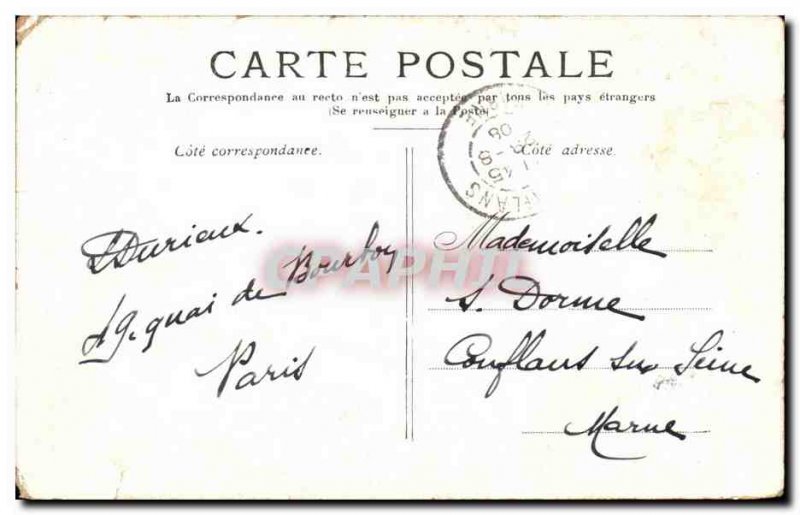 CARTE POSTALE
La Correspondance au recto n'est pas acceptée par tous les pays étrangers
(Se renseigner a la Poste)
Côté correspondance.
Côté adresse.
Durieux.
19. quai de Bourbon
Paris
Mademoiselle
S. Dorme
Conflans sur Seine
Marne
CPAPHIL